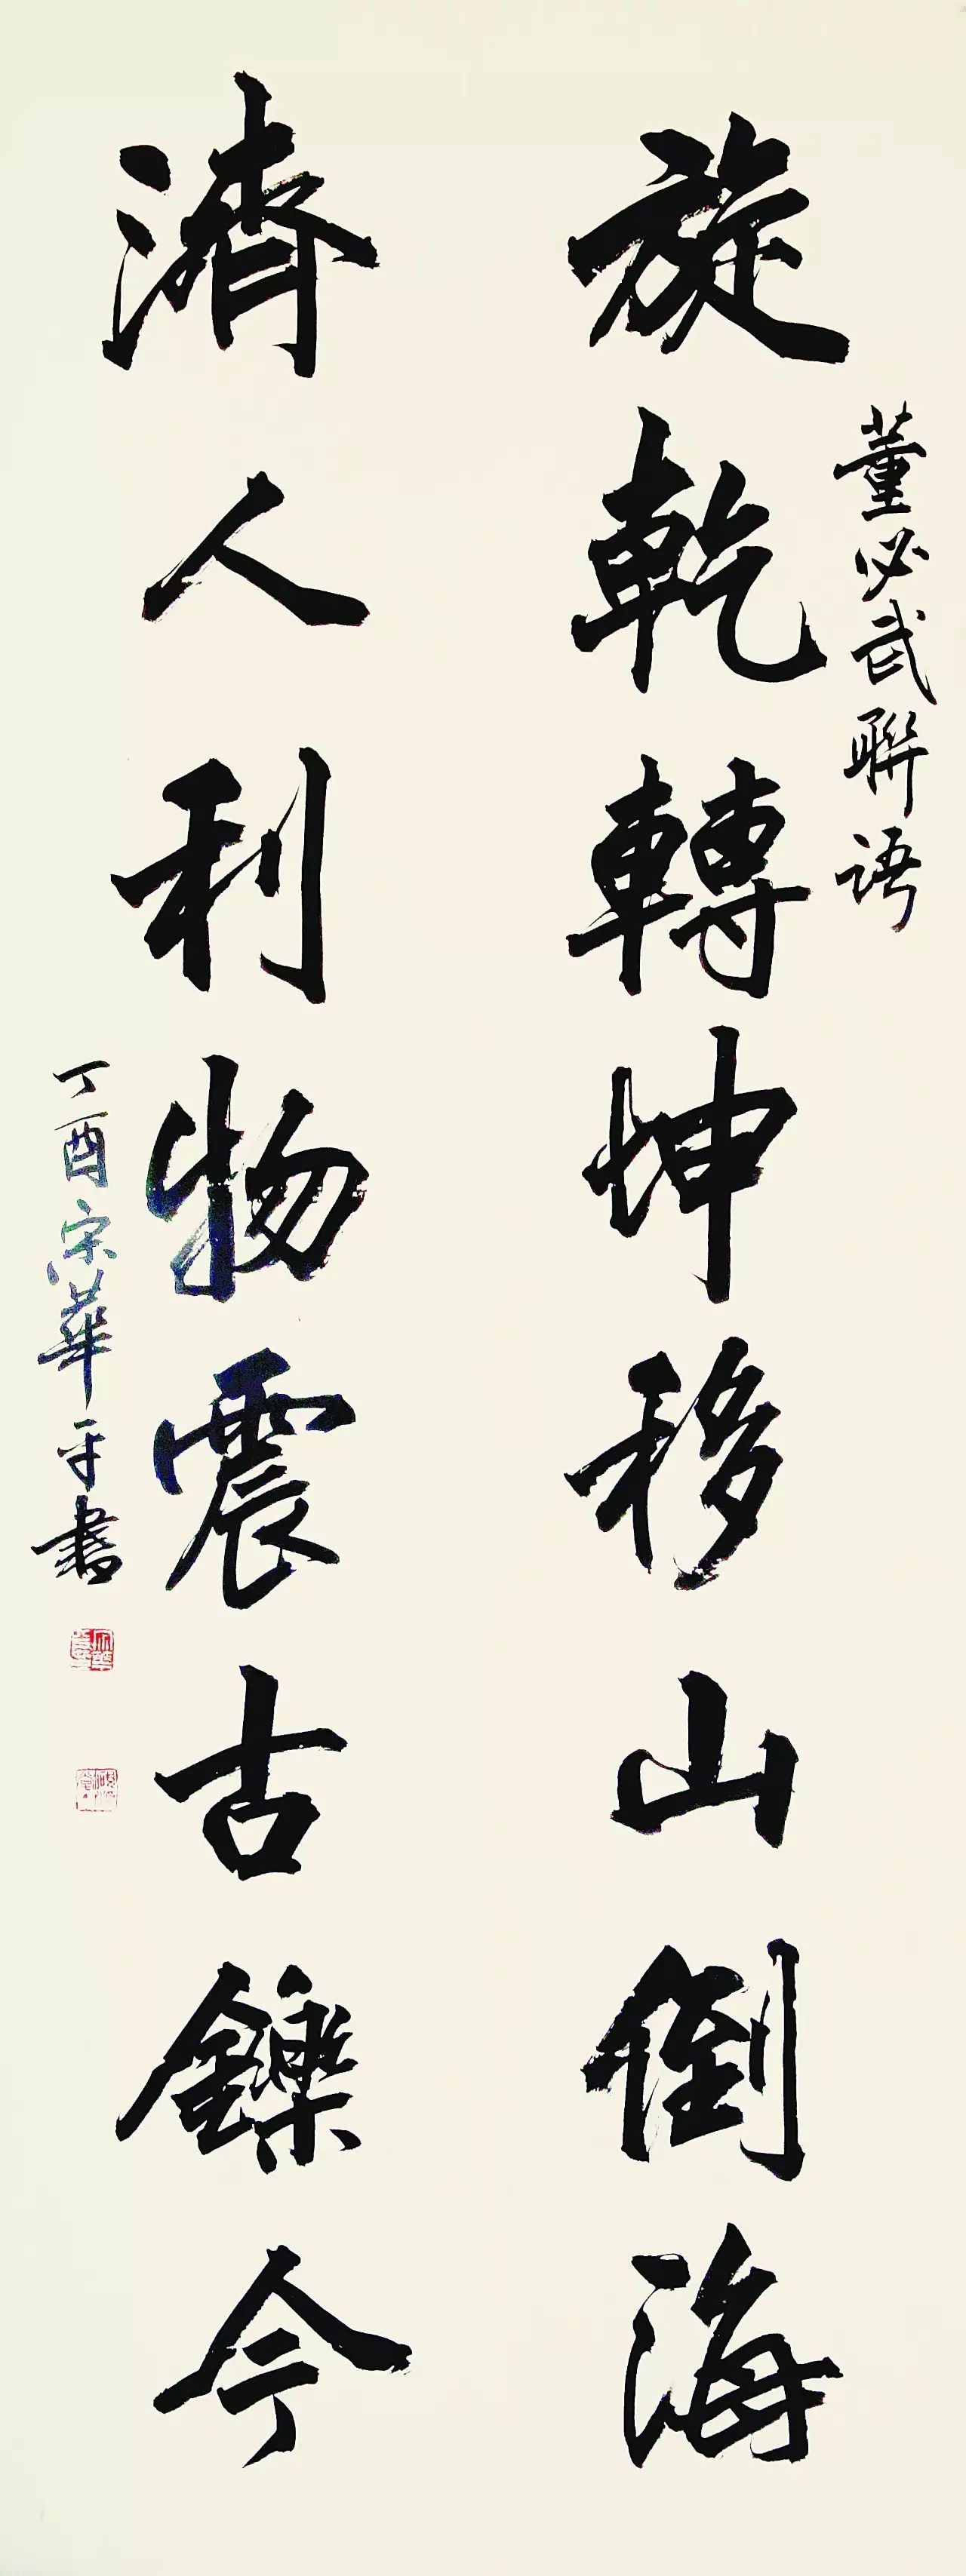 董必武聯语
旋乾轉坤移山倒海
濟人利物震古鑠今
丁酉宋華平書